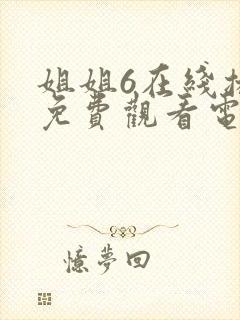 姐姐6在綫
免費觀看電
憶夢回